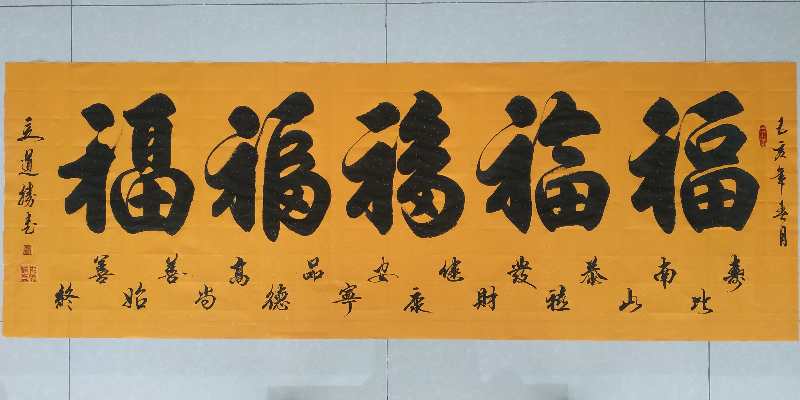 己亥年春月
福福福福福
壽比南山恭禧發財健康安寧品德高尚善始善終
道勝書